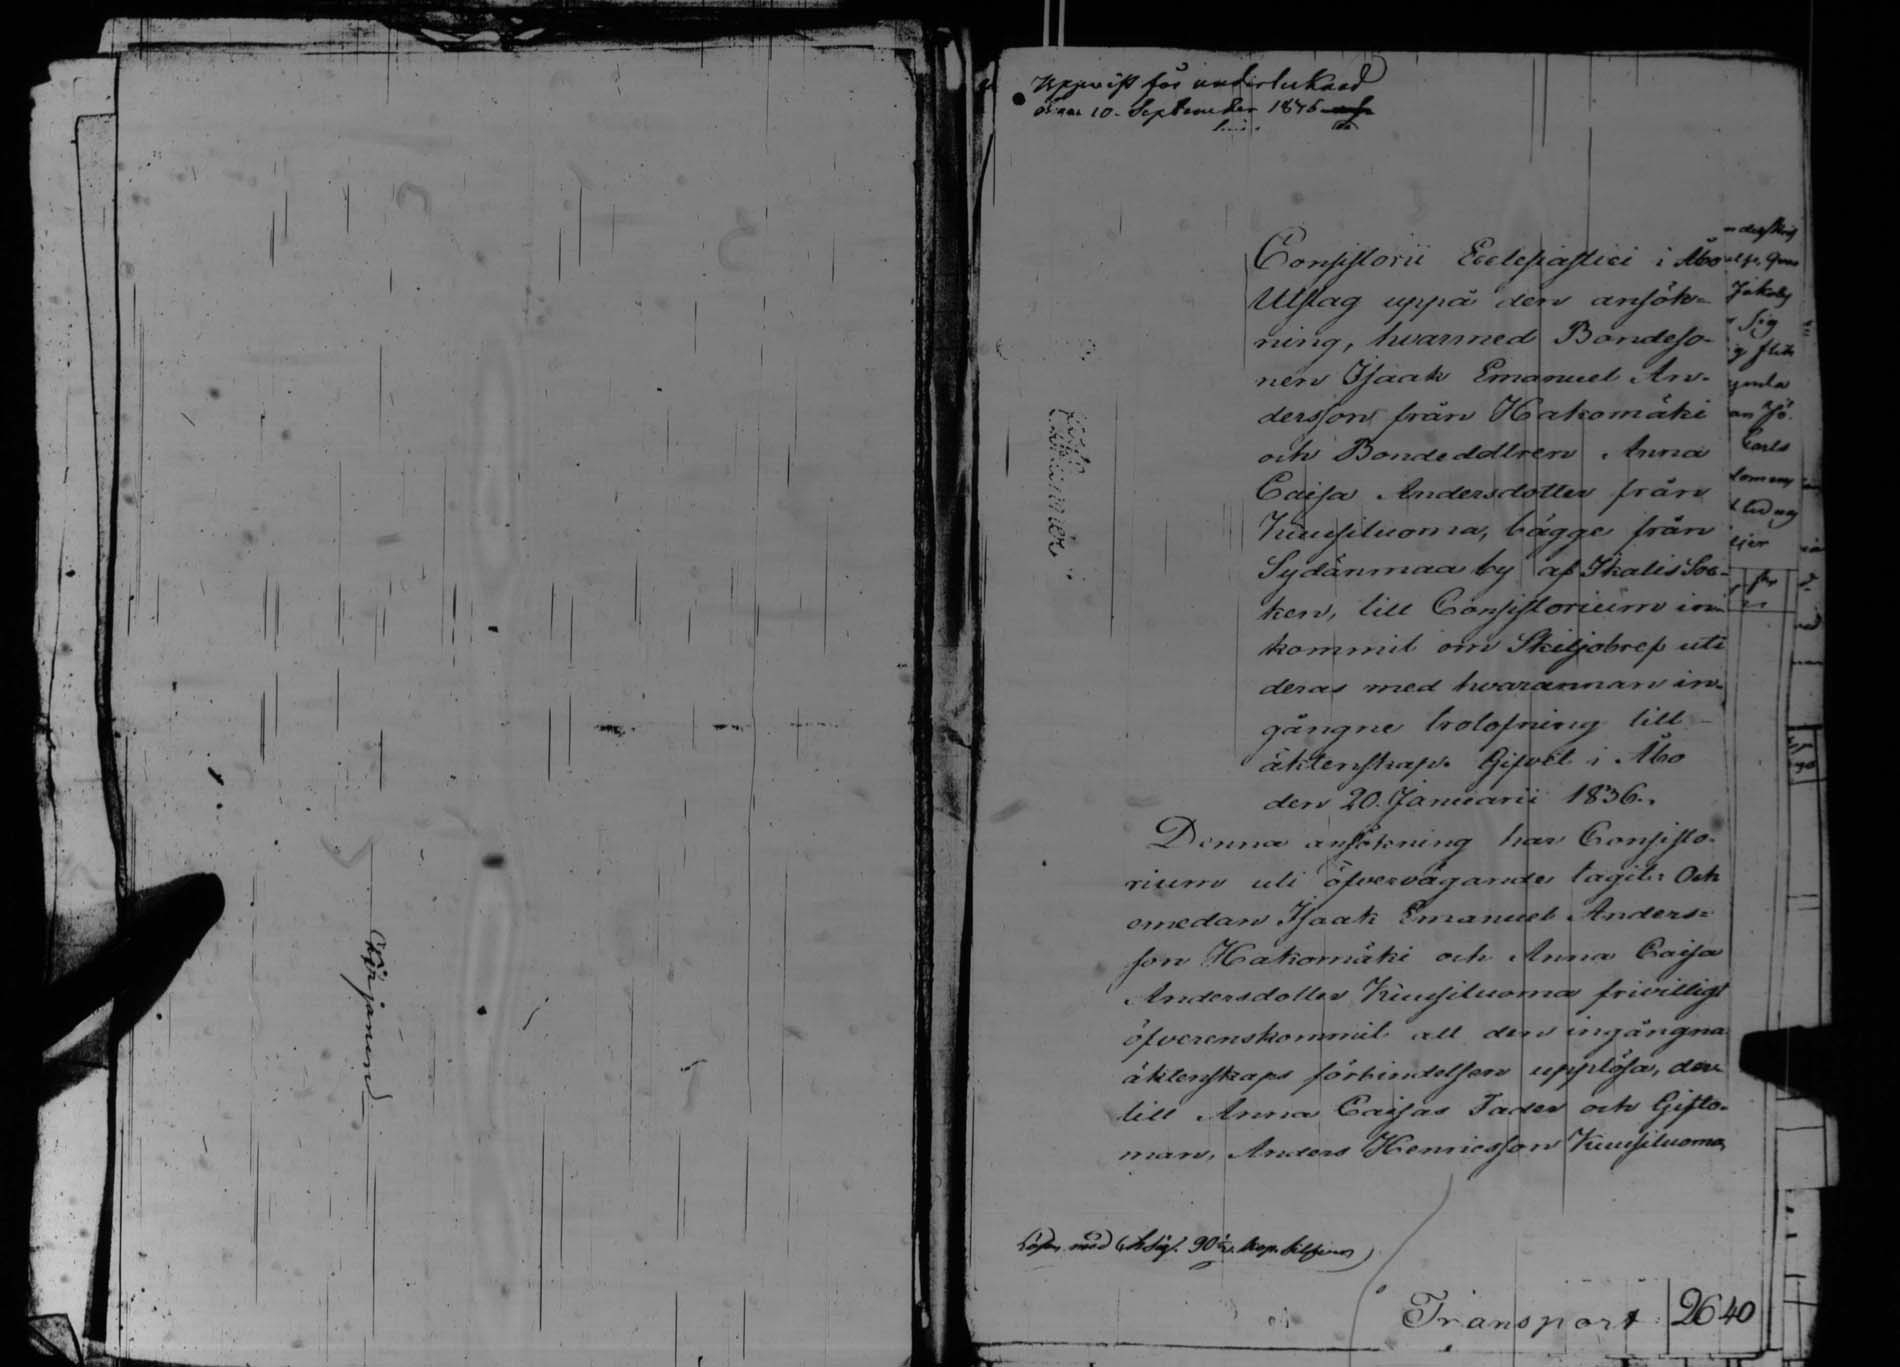 Kyrjänen
Uppvist för undertecknad
10. September 1846
Consistorii Ecclesiastici i Åbo
Utslag uppå den ansök-
ning, hvarmed Bondeso-
nen Isaak Emanuel An-
dersson från Hakomäki
och Bondedottren Anna
Caisa Andersdotter från
Kuusiluoma, bägge från
Sydänmaa by af Ikalis Soc-
ken, till Consistorium in-
kommit om Skiljobref uti
deras med hvarannan in-
gångne trolofning till
äktenskap. Gifvet i Åbo
den 20. Januarii 1836.
Denna ansökning har Consisto-
rium uti öfvervägande tagit: Och
emedan Isaak Emanuel Anders-
son Hakomäki och Anna Caisa
Andersdotter Kuusiluoma frivilligt
öfverenskommit att den ingångna
äktenskaps förbindelsen upplösa, der-
till Anna Caisas Fader och Gifto-
man, Anders Henricsson Kuusiluoma
Lösen med 90 kop. Silfver
Transport 26 40
Jakobs
Sig
Carls